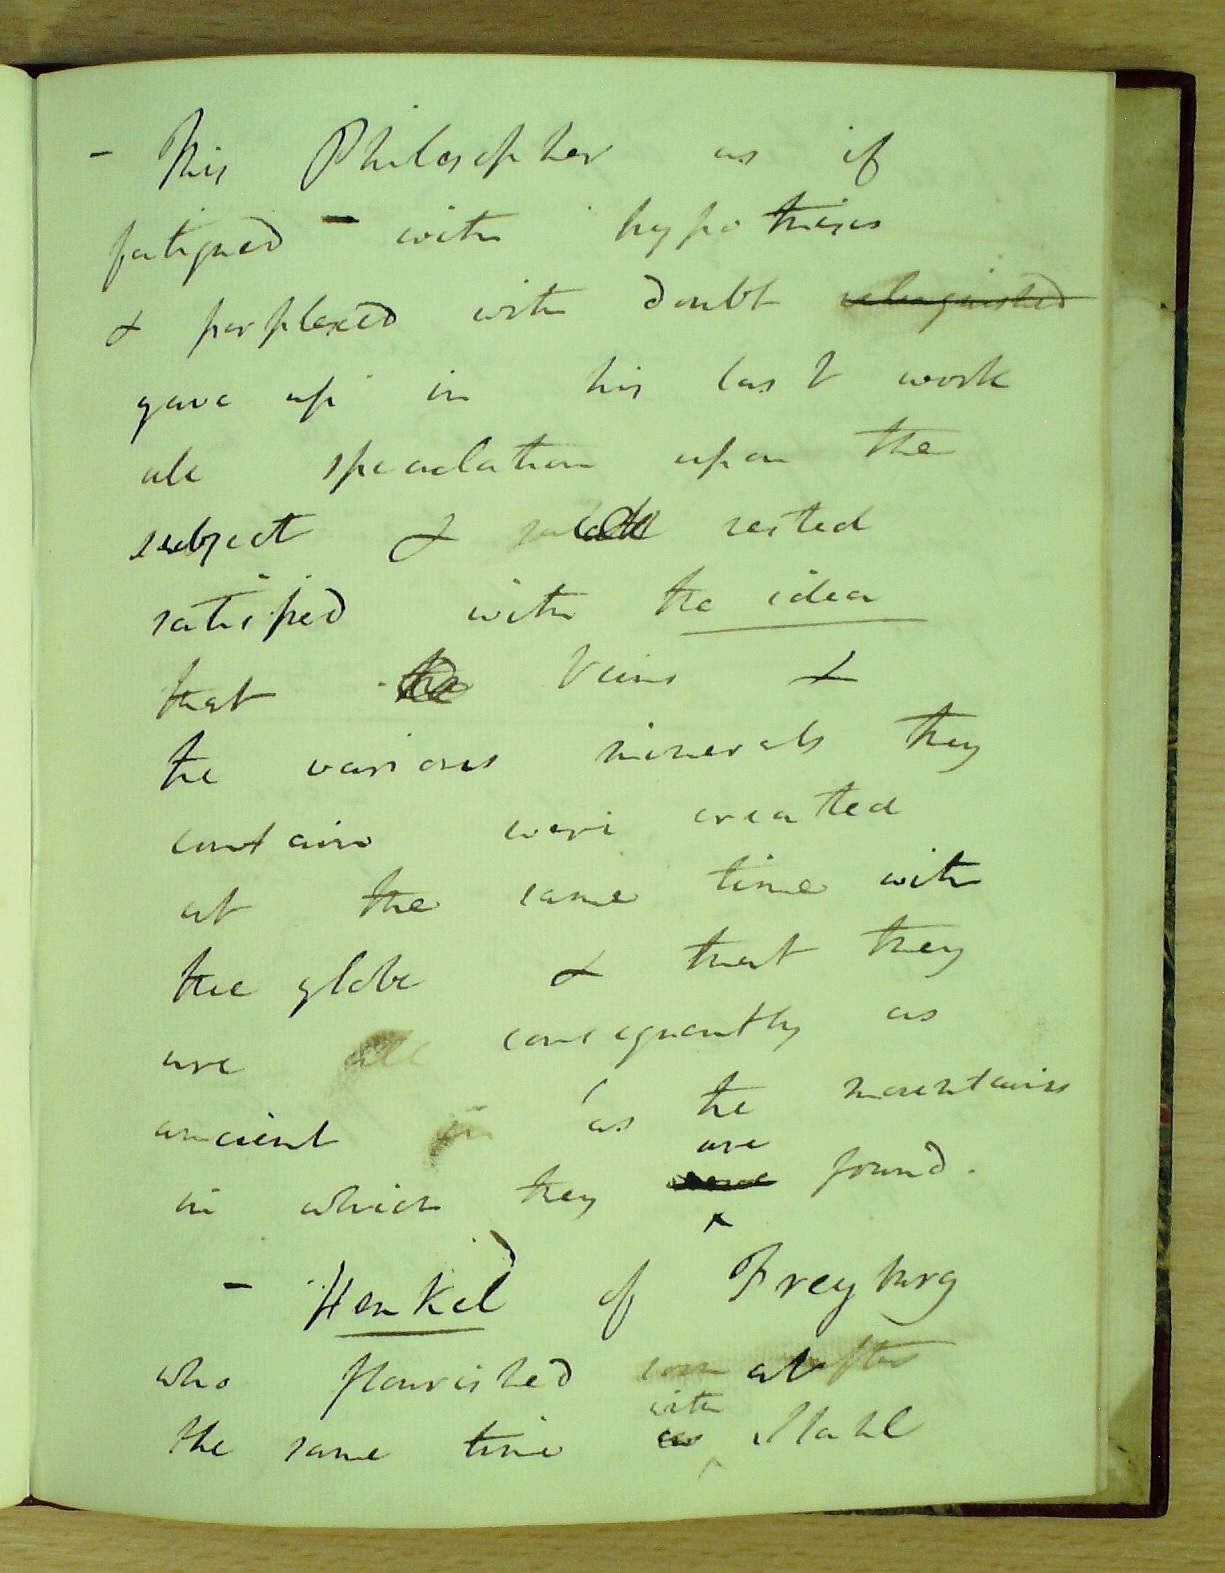 - This Philosopher as if
fatigued - with hypothesis
& perplexed with doubt relinquished
gave up in his last work
all speculation upon the
subject & rested
satisfied with the idea
that the Veins &
the various minerals they
contain were created
at the same time with
the globe & that they
are all consequently as
ancient in as the mountains
in which they are found.
- Henkel of Freyburg
who flourished soon at after
the same time with as Stahl